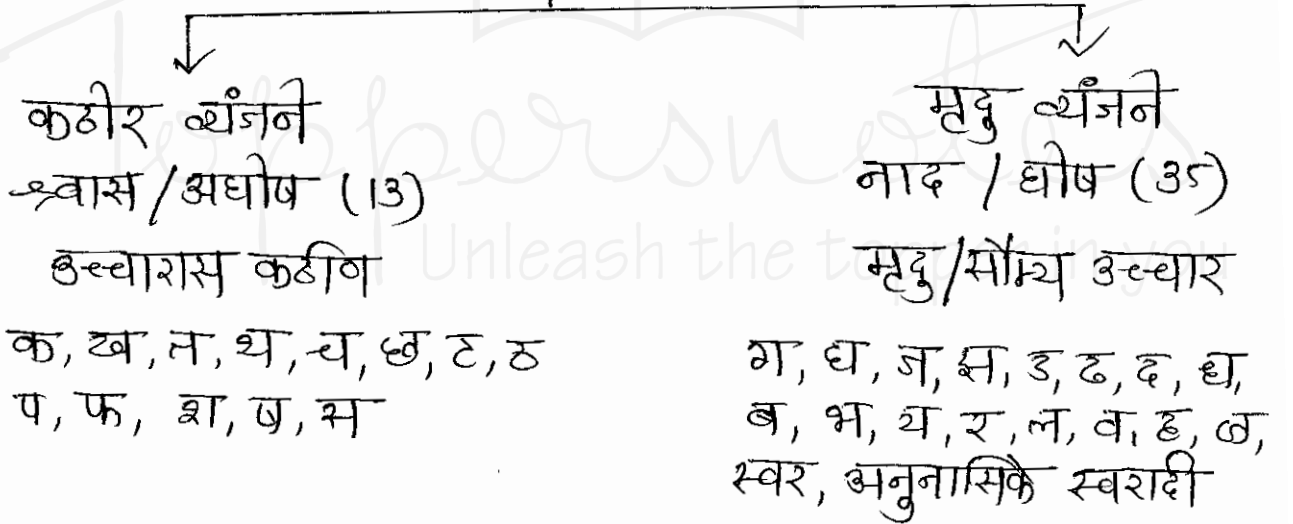 कठोर व्यंजने
श्वास/अघोष (13)
उच्चारास कठीण
क, ख, त, थ, च, छ, ट, ठ
प, फ, श, ष, स
मृदु व्यंजने
नाद / घोष (35)
मृदु/सौम्य उच्चार
ग, घ, ज, झ, ड, ढ, द, ध,
ब, भ, य, र, ल, व, ह, ळ,
स्वर, अनुनासिके स्वरादी
Toppersnotes
Unleash the topper in you